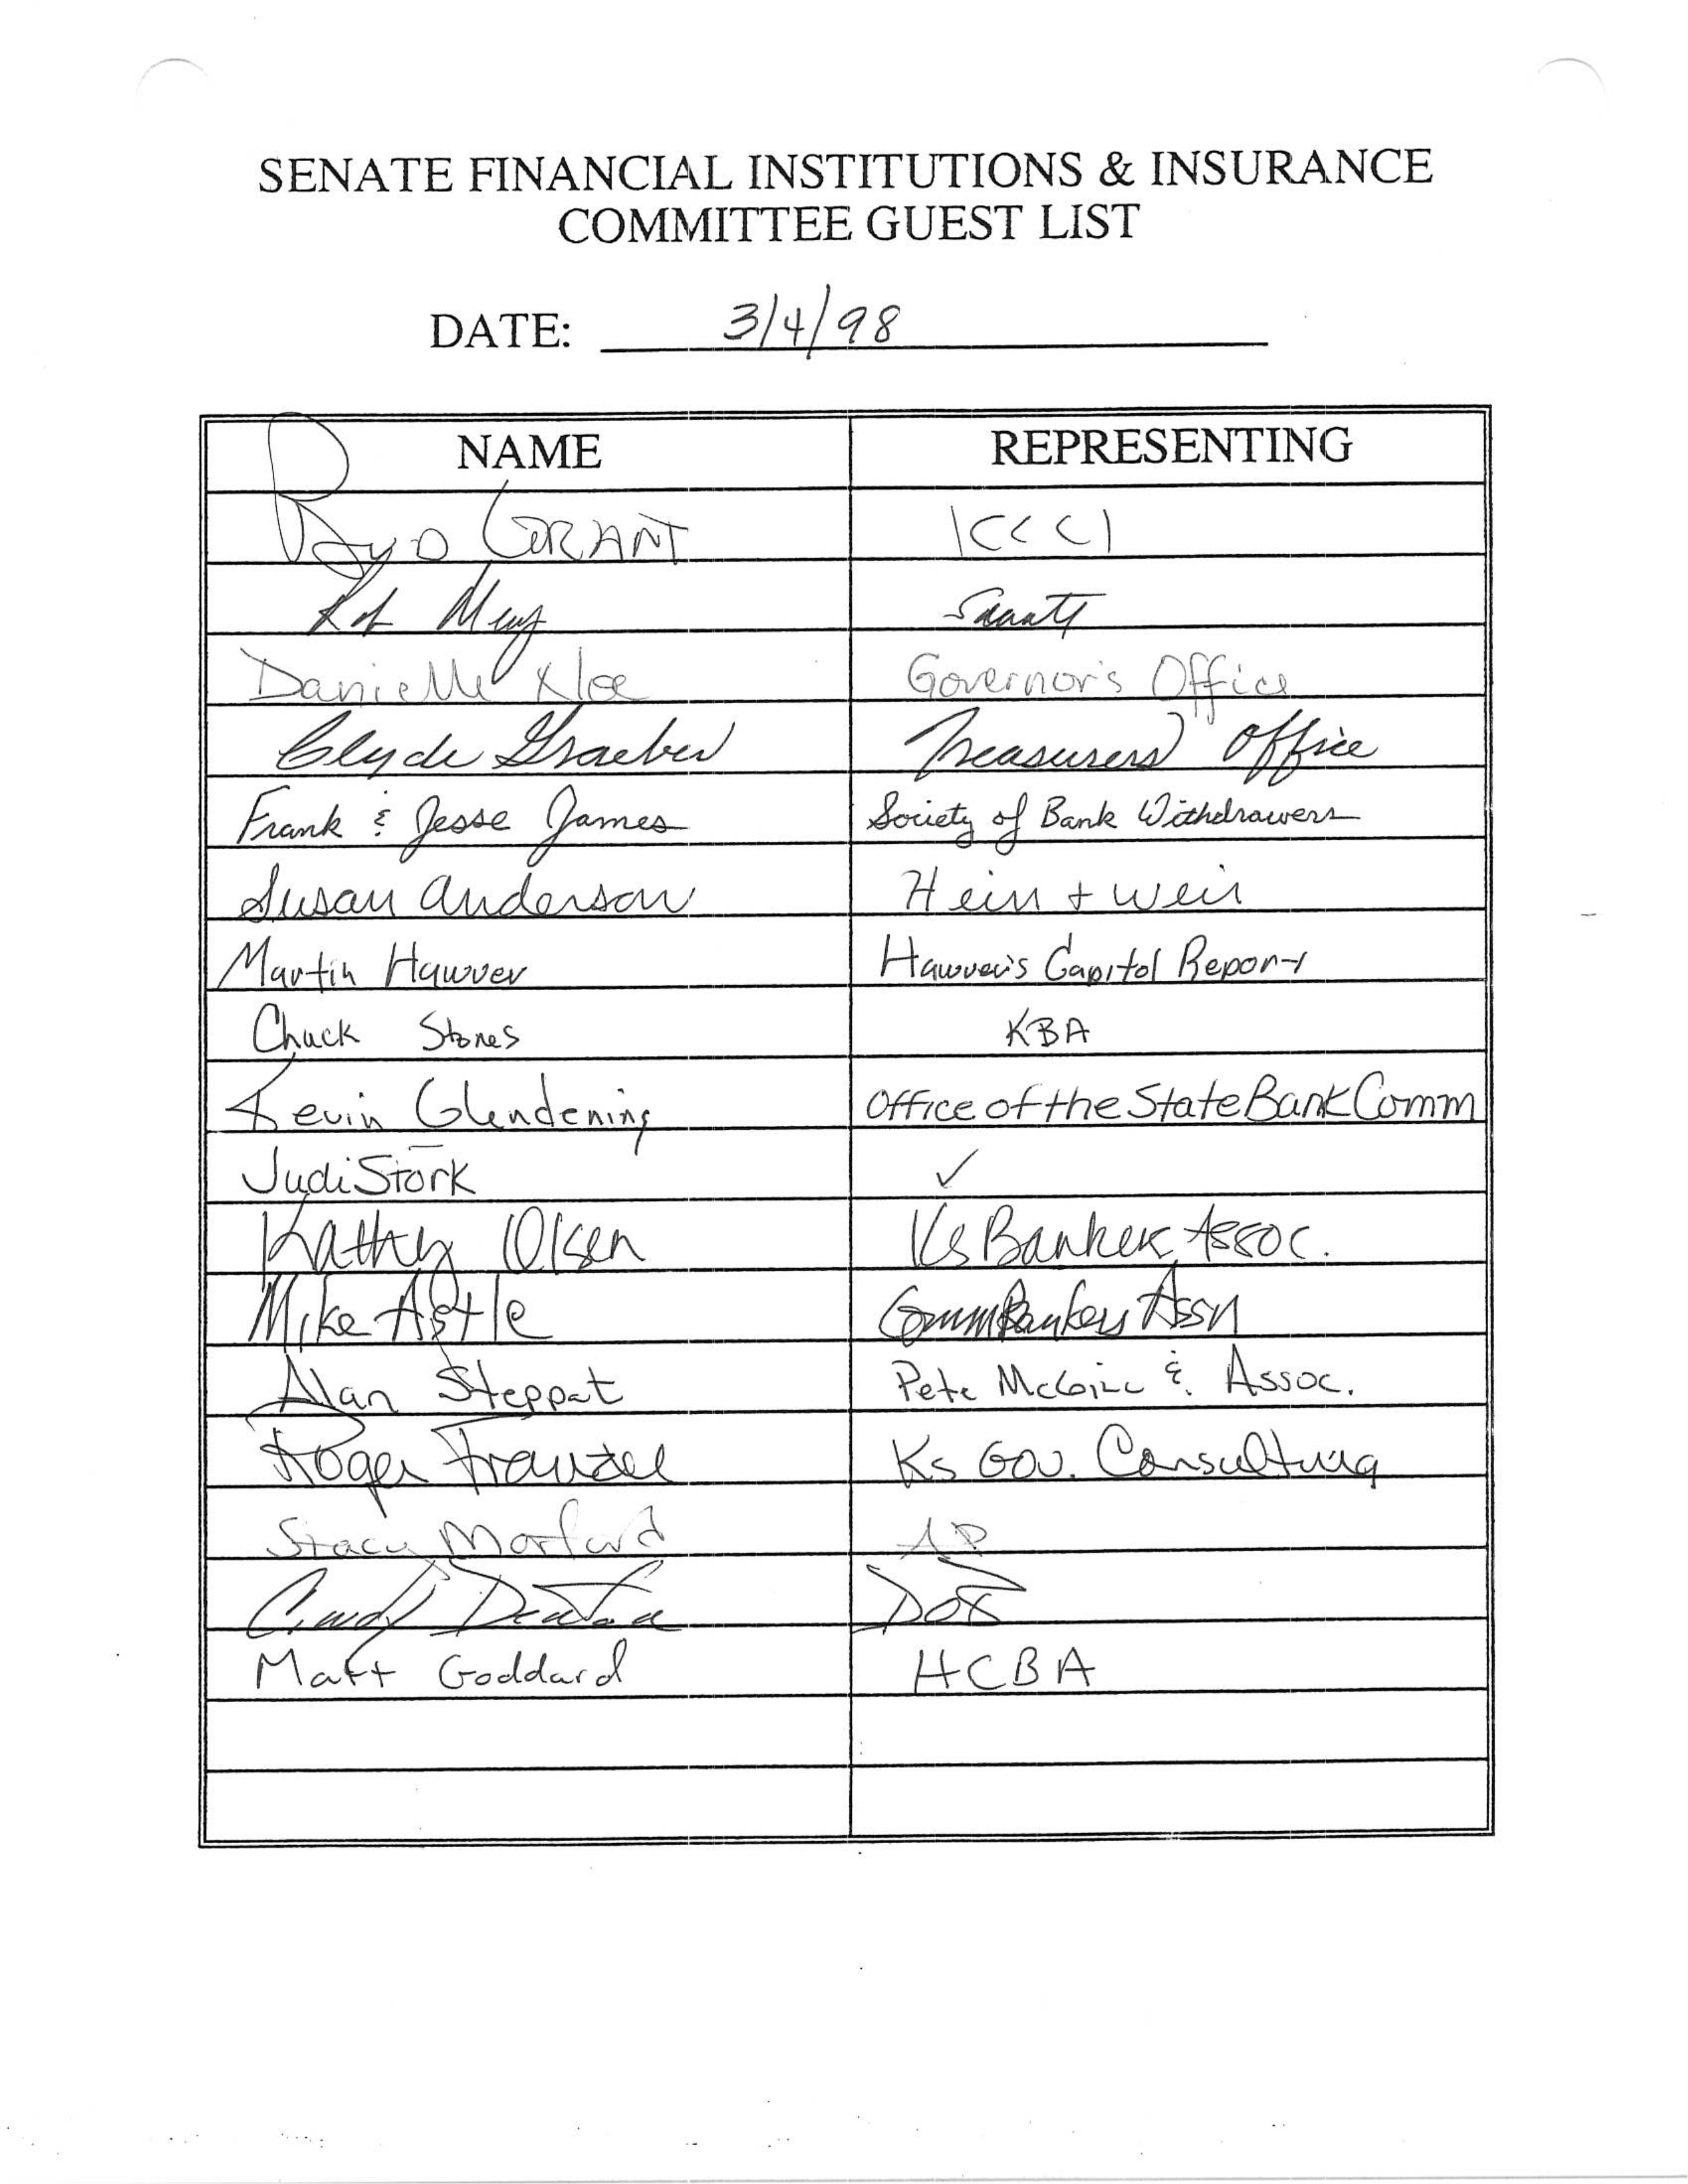 SENATE FINANCIAL INSTITUTIONS & INSURANCE
COMMITTEE GUEST LIST
DATE: 3/4/98
NAME REPRESENTING
Boyd GRANT KCCI
Danielle Noe Governor's Office
Clyde Graeber Treasurers Office
Frank & Jesse James Society of Bank Withdrawers
Susan Anderson Hein + Weir
Martin Hawver Hawver's Capitol Report
Chuck Stones KBA
Kevin Glendening Office of the State Bank Comm
Judi Stork ✓
Kathy Olsen Ks Bankers Assoc.
Mike Astle Comm Bankers Assn
Alan Steppat Pete McGill & Assoc.
Roger Franzke Ks Gov. Consulting
Stacy Morford AP
Cindy Denton DOB
Matt Goddard HCBA